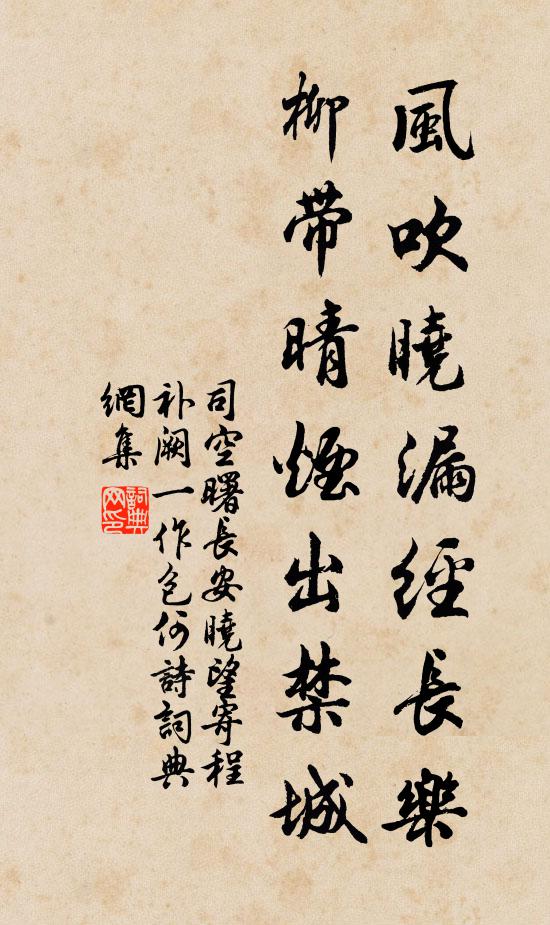 風吹曉漏經長樂
柳帶晴煙出禁城
司空曙長安曉望寄程
补阙一作包何詩詞典
網集
詞典
网印